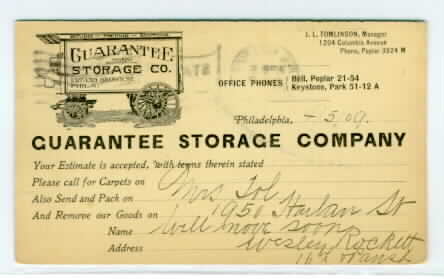 GUARANTEE
STORAGE CO.
J. L. TOMLINSON, Manager
1204 Columbia Avenue
Phone, Poplar 3924 M
OFFICE PHONES
Bell, Poplar 21-54
Keystone, Park 51-12 A
Philadelphia, - 5, 09.
GUARANTEE STORAGE COMPANY
Your Estimate is accepted, with terms therein stated
Please call for Carpets on
Also Send and Pack on
And Remove our Goods on
Mrs
1950 Harlan St
Will move soon
Name Wesley Rockett
Address